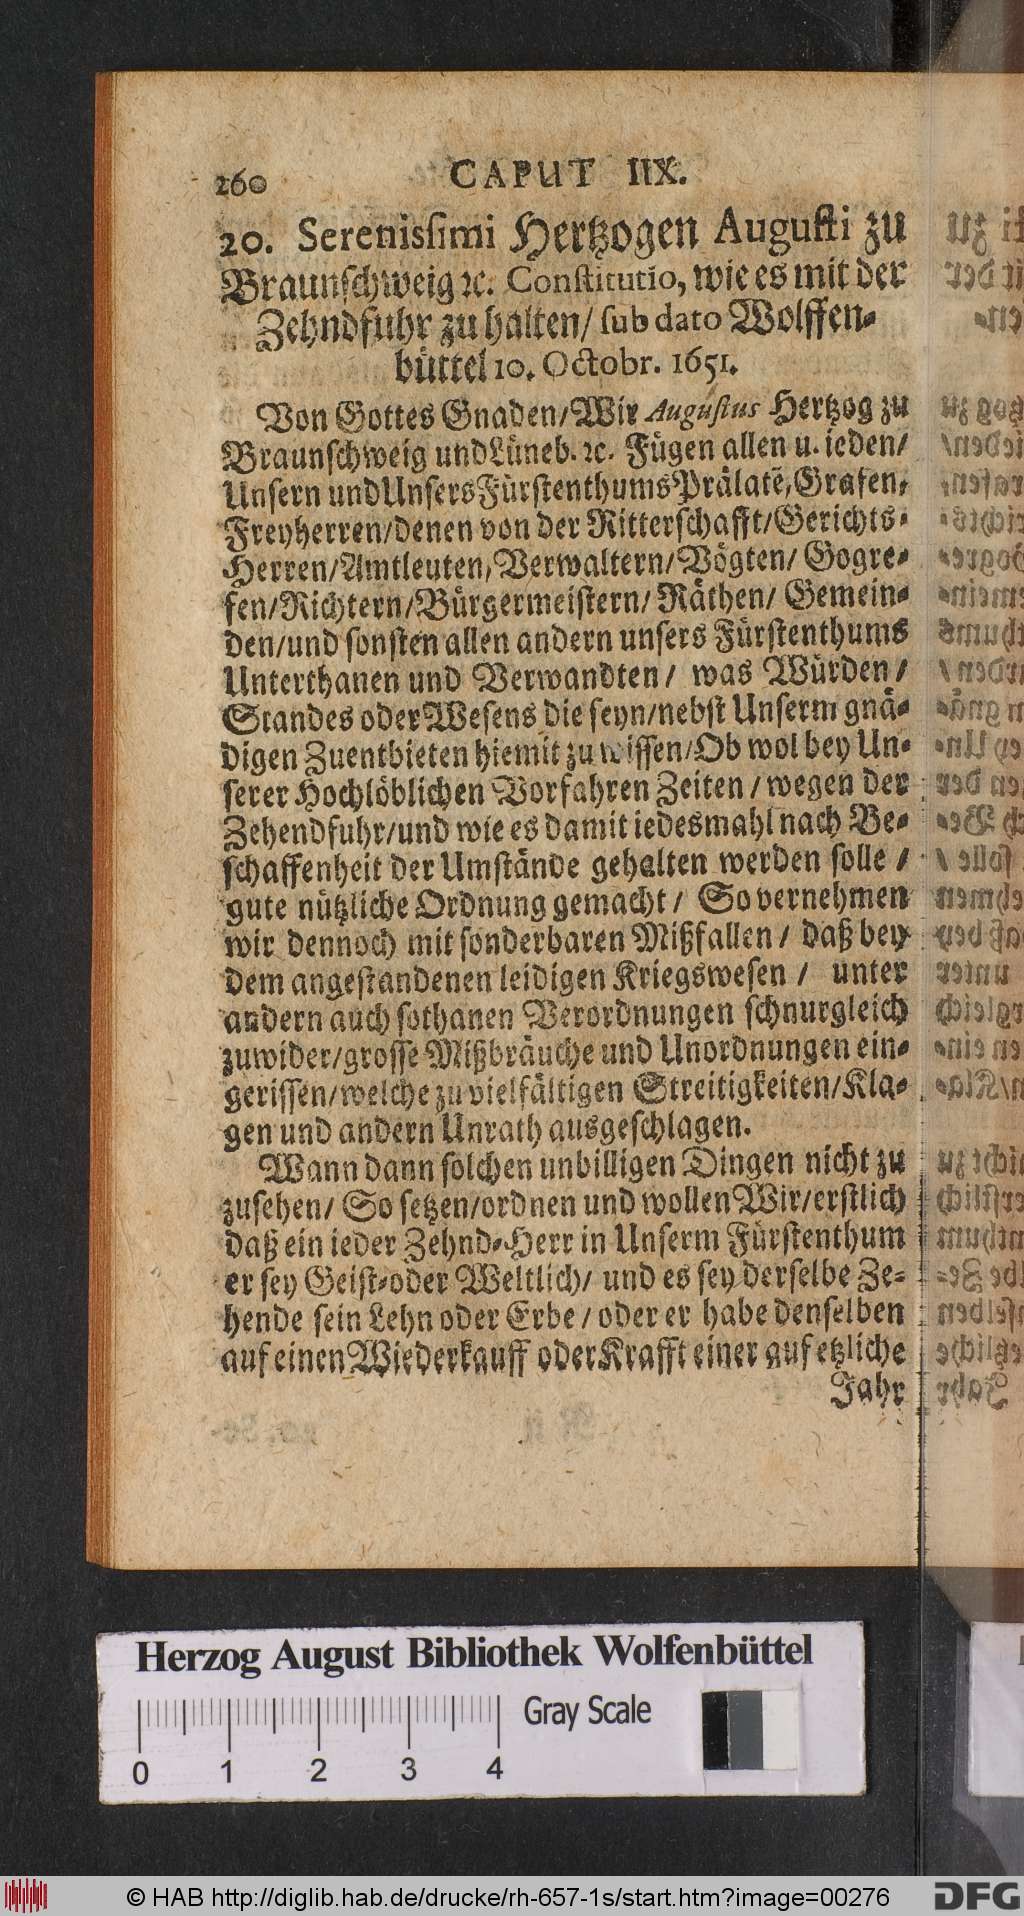 260 CAPUT IIX.
20. Serenissimi Hertzogen Augusti zu
Braunschweig ꝛc. Constitutio, wie es mit der
Zehndfuhr zu halten/ sub dato Wolffen-
büttel 10. Octobr. 1651.
Von Gottes Gnaden/Wir Augustus Hertzog zu
Braunschweig und Lüneb. ꝛc. Fügen allen u. ieden/
Unsern und Unsers Fürstenthums Prälatē, Grafen,
Freyherren/denen von der Ritterschafft/Gerichts-
Herren/Amtleuten, Verwaltern/Vögten/ Gogre-
fen/Richtern/Bürgermeistern/ Räthen/ Gemein-
den/und sonsten allen andern unsers Fürstenthums
Unterthanen und Verwandten/ was Würden/
Standes oder Wesens die seyn/nebst Unserm gnä-
digen Zuentbieten hiemit zu wissen/Ob wol bey Un-
serer Hochlöblichen Vorfahren Zeiten/wegen der
Zehendfuhr/und wie es damit iedesmahl nach Be-
schaffenheit der Umstände gehalten werden solle/
gute nützliche Ordnung gemacht/ So vernehmen
wir dennoch mit sonderbaren Mißfallen/ daß bey
dem angestandenen leidigen Kriegswesen/ unter
andern auch sothanen Verordnungen schnurgleich
zuwider/grosse Mißbräuche und Unordnungen ein-
gerissen/welche zu vielfältigen Streitigkeiten/Kla-
gen und andern Unrath ausgeschlagen.
Wann dann solchen unbilligen Dingen nicht zu
zusehen/ So setzen/ordnen und wollen Wir/erstlich
daß ein ieder Zehnd-Herr in Unserm Fürstenthum
er sey Geist-oder Weltlich/ und es sey derselbe Ze-
hende sein Lehn oder Erbe/oder er habe denselben
auf einen Wiederkauff oder Krafft einer auf etzliche
Jahr
Herzog August Bibliothek Wolfenbüttel
Gray Scale
0 1 2 3 4
© HAB http://diglib.hab.de/drucke/rh-657-1s/start.htm?image=00276
DFG